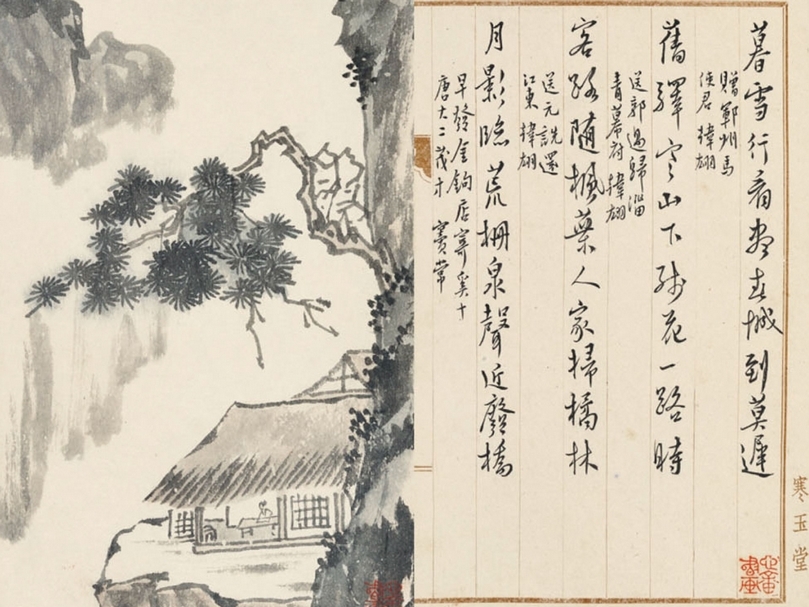 暮雪行看盡春城到莫遲
贈鄆州馬
使君 韓翃
舊驛空山下殘花一路時
送郭過歸淄
青幕府 韓翃
客路隨楓葉人家掃橘林
送元詵還
江東 韓翃
月影臨荒柵泉聲近廢橋
早發金鉤店寄奚十
唐大二茂才 竇常
寒玉堂